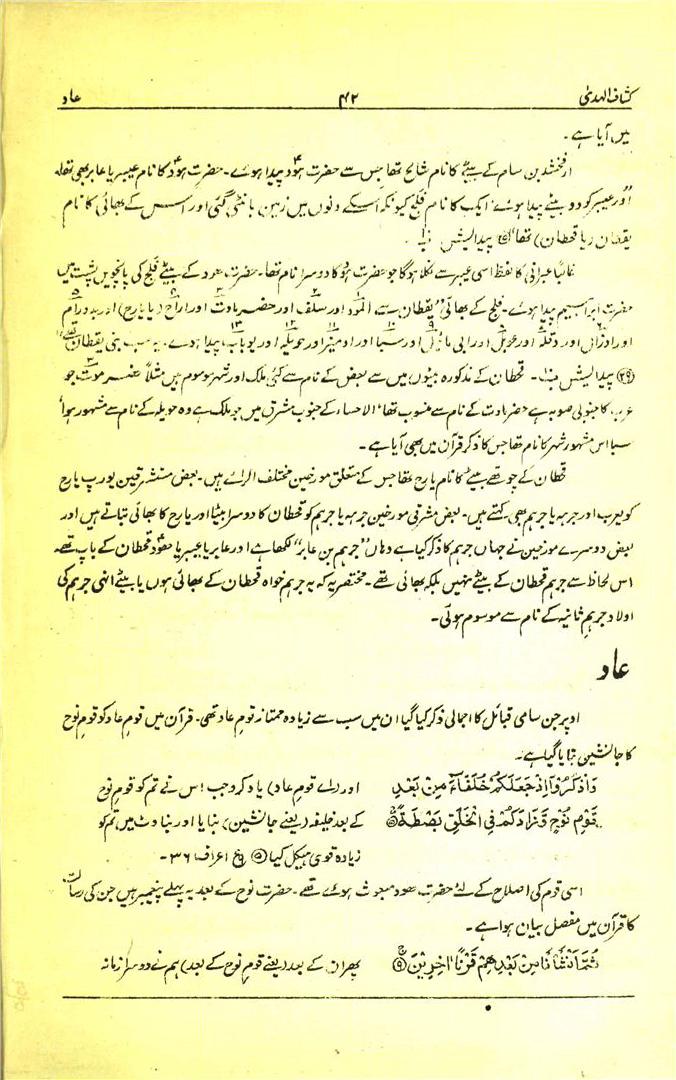 کشاف الہدیٰ ۴۲ عاد
میں آیا ہے۔
ارفخشد بن سام کے بیٹے کا نام شالح تھا جس سے حضرت ہودؑ پیدا ہوئے۔ حضرت ہودؑ کا نام عیبر یا عابر بھی تھا
اور عیبر کو دو بیٹے پیدا ہوئے ایک کا نام فلج کیونکہ اسکے دنوں میں زمین بانٹی گئی اور اسس کے بھائی کا نام
یقطان (یا قحطان) تھا" پیدائیش
غالباً عبرانی کا لفظ اسی عیبر سے نکلا ہوگا جو حضرت ہودؑ کا دوسرا نام تھا۔ حضرت ہود کے بیٹے فلج کی پانچویں پشت میں
حضرت ابراہیم پیدا ہوئے۔ فلج کے بھائی "یقطان سے الموداد اور سلف اور حضر ماوت اور اراح (یا یارح) اور ہدورام
اور اوزال اور دقلہ اور عوبل اور ابی مائیل اور سبا اور اوفیر اور حویلہ اور یوباب پیدا ہوے۔ یہ سب بنی یقطان تھے"
(۲۹) پیدائیش۔ قحطان کے مذکورہ بیٹوں میں سے بعض کے نام سے کئی ملک اور شہر موسوم ہیں مثلاً حضر موت جو
عرب کا جنوبی صوبہ ہے حضر ماوت کے نام سے منسوب تھا الاحساء کے جنوب مشرق میں جو ملک ہے وہ حویلہ کے نام سے مشہور ہوا
سبا اس مشہور شہر کا نام تھا جس کا ذکر قرآن میں بھی آیا ہے۔
قحطان کے چوتھے بیٹے کا نام یارح تھا جس کے متعلق مورخین مختلف الرائے ہیں۔ بعض مستشرقین یورپ یارح
کو یعرب اور جرہہ یا جرہم بھی کہتے ہیں۔ بعض مشرقی مورخین جرہہ یا جرہم کو قحطان کا دوسرا بیٹا اور یارح کا بھائی بتاتے ہیں اور
بعض دوسرے مورخین نے جہاں جرہم کا ذکر کیا ہے وہاں "جرہم بن عابر" لکھا ہے اور عابر یا عیبر یا ہودؑ قحطان کے باپ تھے
اس لحاظ سے جرہم قحطان کے بیٹے نہیں بلکہ بھائی تھے۔ مختصر یہ کہ یہ جرہم خواہ قحطان کے بھائی ہوں یا بیٹے انہی جرہم کی
اولاد جرہم ثانیہ کے نام سے موسوم ہوئی۔
عاد
اوپر جن سامی قبائل کا اجمالی ذکر کیا گیا ان میں سب سے زیادہ ممتاز قوم عاد تھی۔ قرآن میں قوم عاد کو قوم نوح
کا جانشین بتایا گیا ہے۔
وَاذْكُرُوٓا اِذْ جَعَلَكُمْ خُلَفَآءَ مِنْ بَعْدِ اور (اے قوم عاد) یاد کرو جب اس نے تم کو قوم نوح
قَوْمِ نُوْحٍ وَّزَادَكُمْ فِى الْخَلْقِ بَصْۜطَةً کے بعد خلیفہ (یعنے جانشین) بنایا اور بناوٹ میں تم کو
زیادہ قوی ہیکل کیا (۵) اعراف ۳۶۔
اسی قوم کی اصلاح کے لئے حضرت ھود مبعوث ہوئے تھے۔ حضرت نوح کے بعد یہ پہلے پیغمبر ہیں جن کی رسالت
کا قرآن میں مفصل بیان ہوا ہے۔
ثُمَّ اَنْشَاْنَا مِنْ بَعْدِهِمْ قَرْنًا اٰخَرِيْنَ پھر ان کے بعد (یعنے قوم نوح کے بعد) ہم نے دوسرا زمانہ